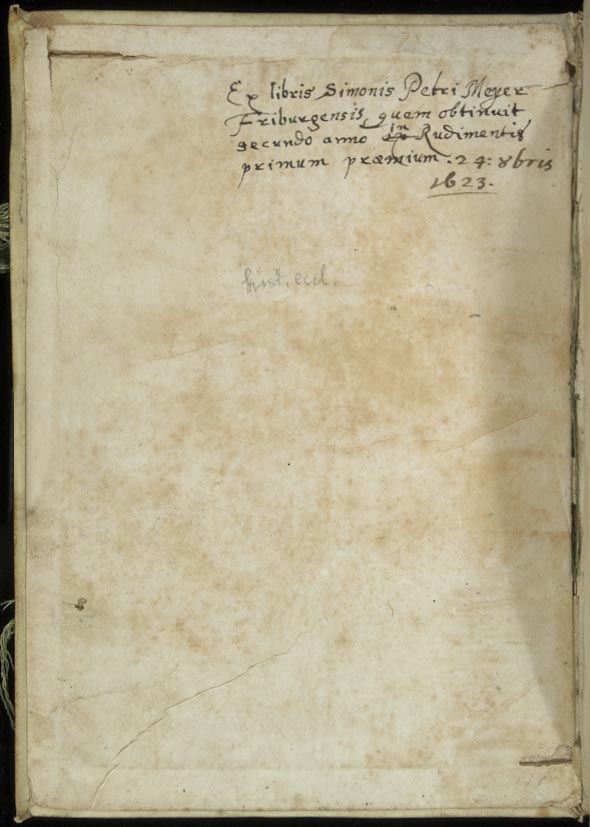 Ex libris Simonis Petri Meyer
Friburgensis, quem obtinuit
secundo anno in Rudimentis
primum præmium. 24: 8bris
1623.
hist. eccl.